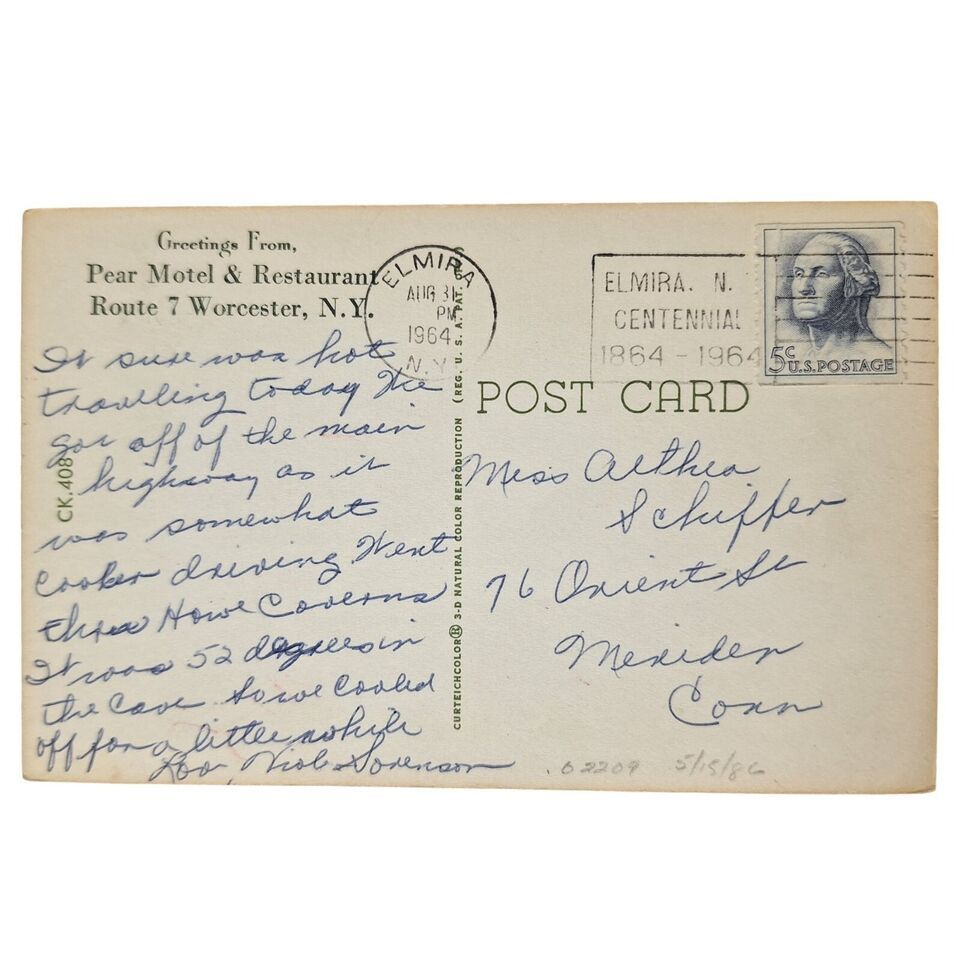 Greetings From,
Pear Motel & Restaurant
Route 7 Worcester, N.Y.
It sure was hot
travelling today We
got off of the main
highway as it
was somewhat
cooler driving Went
threw Howe Caverns
It was 52 degrees in
the cave so we cooled
off for a little while
Sorenson
CK.408
CURTEICHCOLOR® 3-D NATURAL COLOR REPRODUCTION (REG. U. S. A. PAT.
ELMIRA
AUG 31
PM
1964
N.Y.
ELMIRA. N.
CENTENNIAL
1864 - 1964
5c U.S. POSTAGE
POST CARD
Miss Althea
Schiffer
76 Orient St
Meriden
Conn
02209 5/15/86